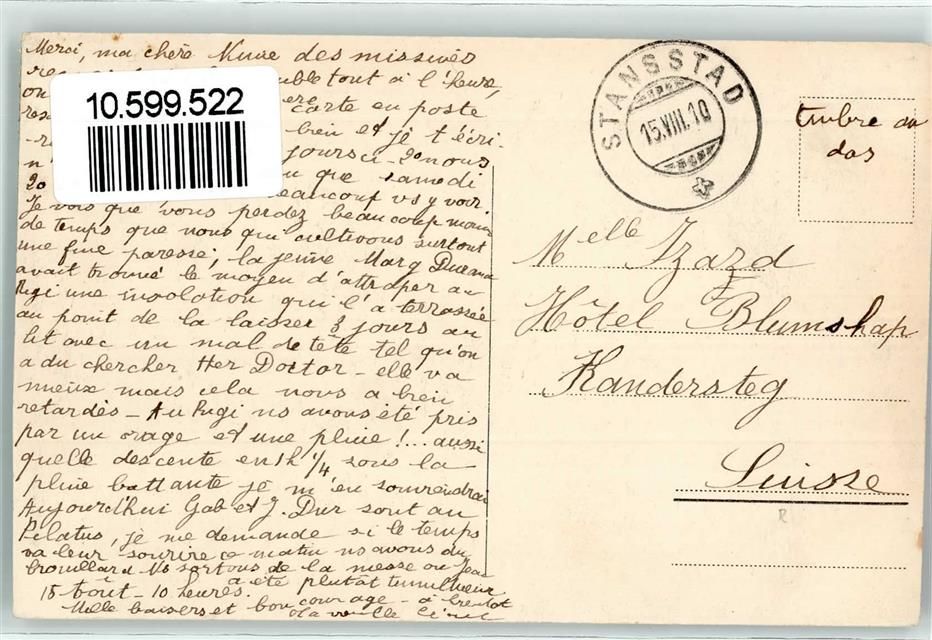 Merci, ma chère des missives
tout à l'heure,
10.599.522
carte en poste
bien et je t'écri-
jours ci - 20 nous
que samedi
20 beaucoup vs y voir
Je vois que vous perdez beaucoup moins
de temps que nous qui cultivons surtout
une fine paresse; la jeune Marg
avait trouvé le moyen d'attraper au
Rigi une insolation qui l'a terrassée
au point de la laisser 3 jours au
lit avec un mal de tête tel qu'on
a du chercher Her Doctor - elle va
mieux mais cela nous a bien
retardés - Au Rigi ns avons été pris
par un orage et une pluie!... aussi
quelle descente en 1h 1/4 sous la
pluie battante je m'en souviendrai
Aujourd'hui Gab et J. Dur sont au
Pilatus, je me demande si le temps
va leur sourire ce matin ns avons du
brouillard Ns sortons de la messe où
a été plutôt tumultueux
15 Août - 10 heures.
Mille baisers et bon courage - à bientôt
STANSSTAD
15.VIII.10
timbre au
dos
Melle Izard
Hôtel Blumshap
Kandersteg
Suisse
R